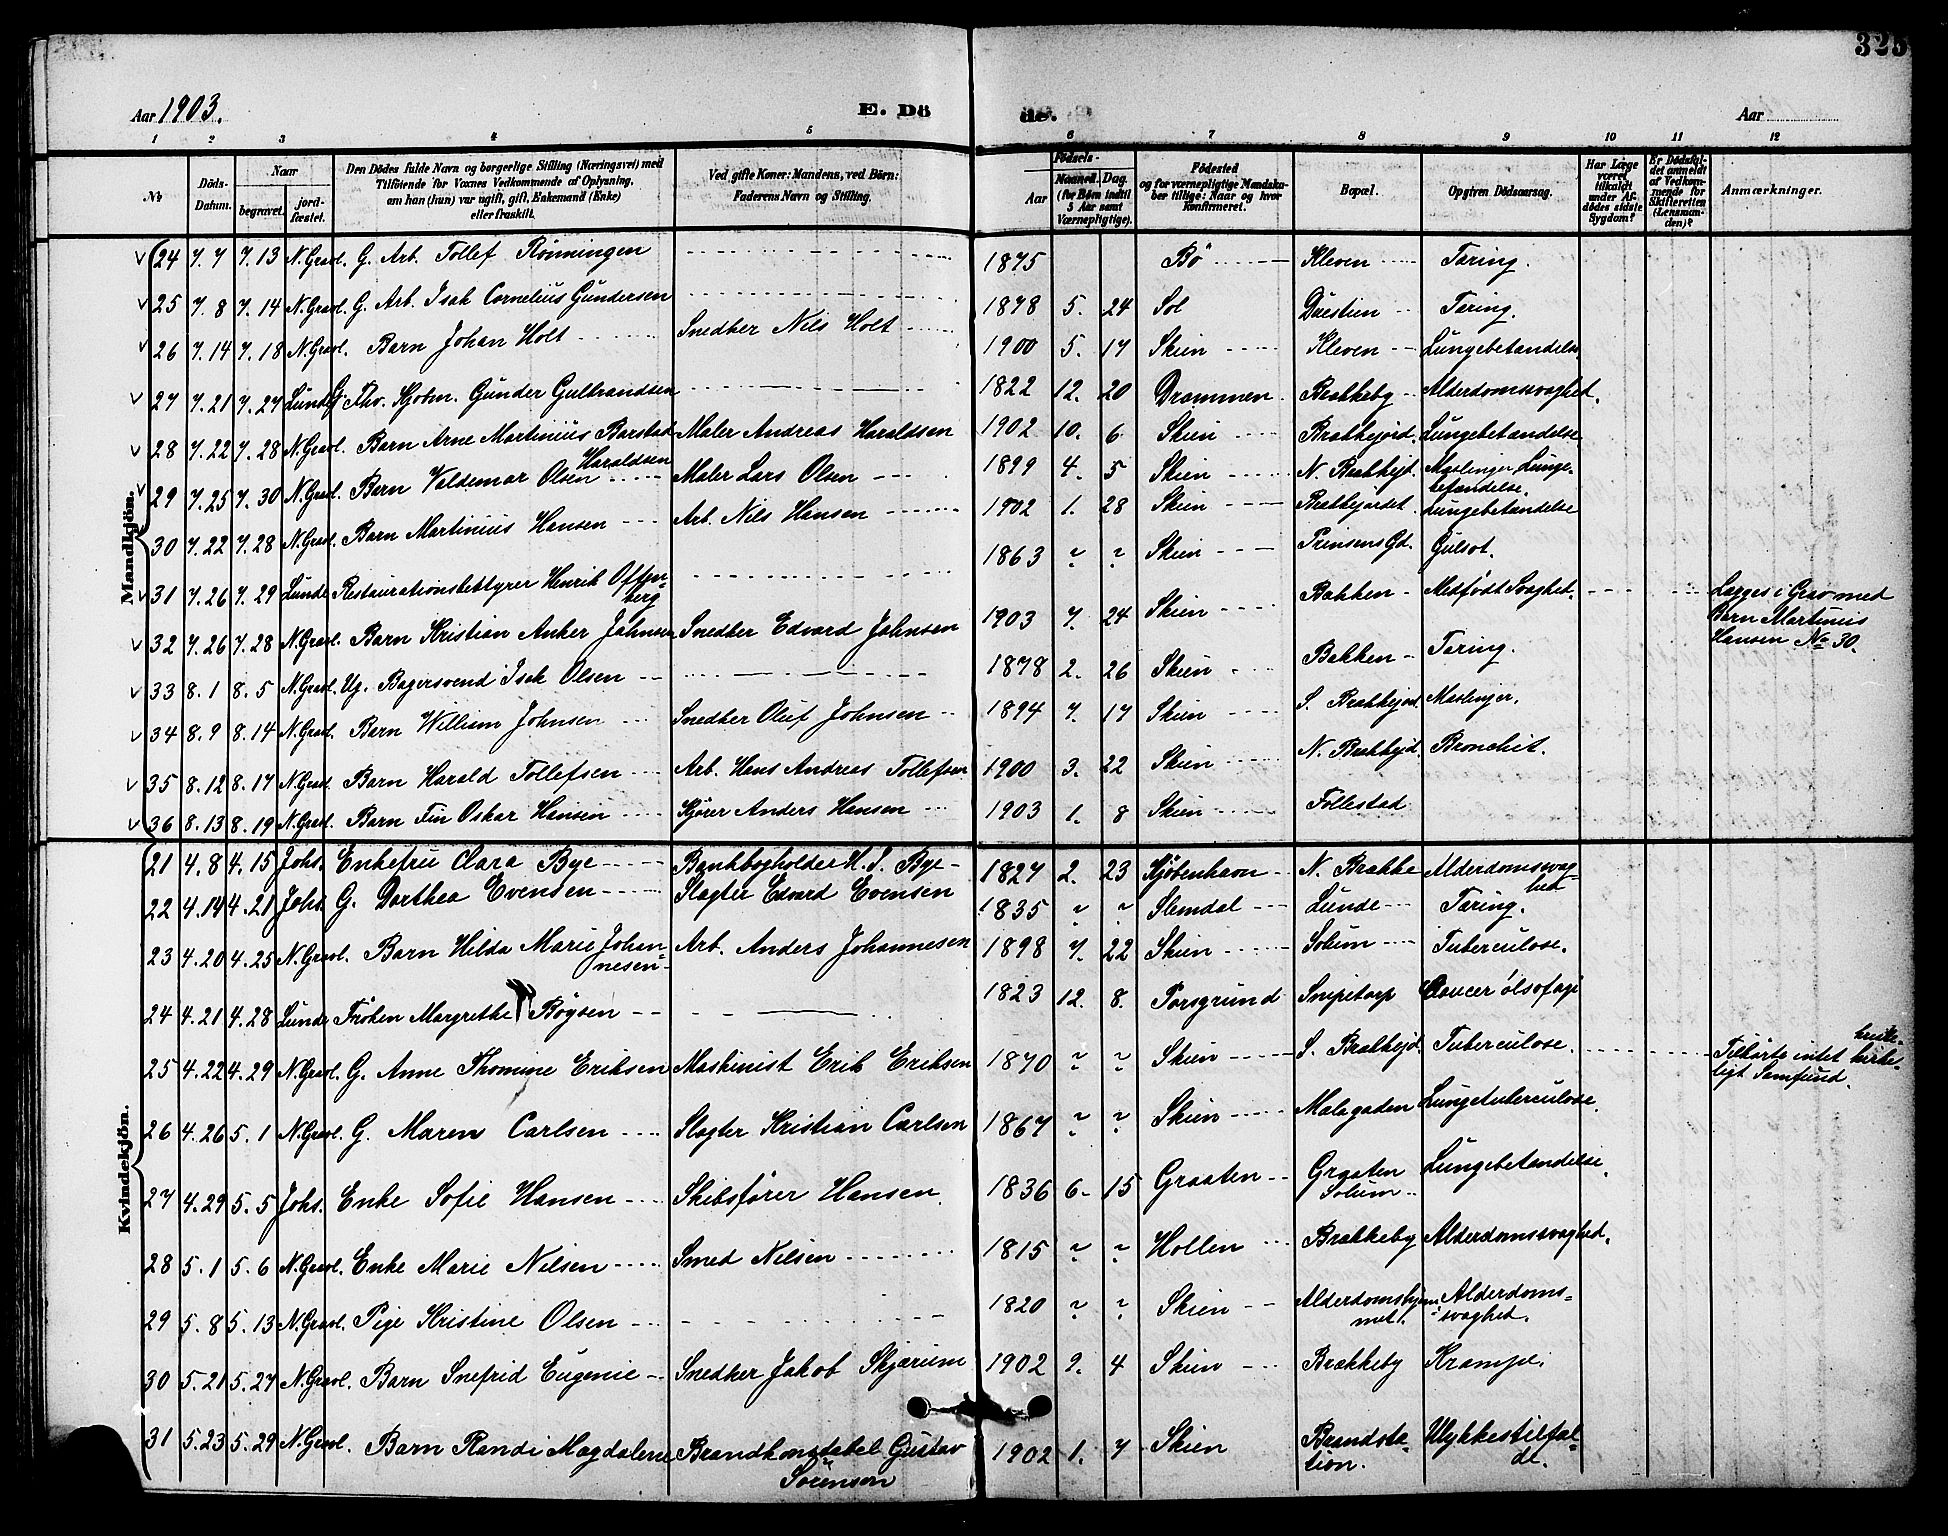 325
Aar 1903.
E. Dö
de.
Aar
1 2 3 4 5 6 7 8 9 10 11 12
No
Döds-Datum.
Naar
begravet.
jord-fæstet.
Den Dödes fulde Navn og borgerlige Stilling (Næringsvei) med
Tilföiende for Voxnes Vedkommende af Oplysning,
om han (hun) var ugift, gift, Enkemand (Enke)
eller fraskilt.
Ved gifte Koner: Mandens, ved Börn:
Faderens Navn og Stilling.
Födsels-
Aar
Maaned. Dag.
(for Börn indtil
5 Aar samt
Værnepligtige).
Födested
og for værnepligtige Mandska-
ber tillige: Naar og hvor
Konfirmeret.
Bopæl.
Opgiven Dödsaarsag.
Har Læge
været
tilkaldt
under Af-
dödes sidste
Sygdom?
Er Dödsfal-
det anmeldt
af Vedkom-
mende for
Skifteretten
(Lensman-
den)?
Anmærkninger.
Mandkjön.
24 7.7 7.13 N. Gravl. G. Arb. Tollef Rönningen 1875 Bö Kleven Tæring.
25 7.8 7.14 N. Gravl. G. Arb. Isak Cornelius Gundersen 1878 5. 24 Sol Duestien Tæring.
26 7.14 7.18 N. Gravl. Barn Johan Holt Snedker Nils Holt 1900 5. 17 Skien Kleven Lungebetændelse
27 7.21 7.27 Lunde G. Fhv. Skotm. Gunder Gulbrandsen 1822 12. 20 Drammen Brækkeby Alderdomssvaghed.
28 7.22 7.28 N. Gravl. Barn Arne Martinius Barstad Haraldsen Maler Andreas Haraldsen 1902 10. 6 Skien Brækkejord. Lungebetændelse
29 7.25 7.30 N. Gravl. Barn Valdemar Olsen Maler Lars Olsen 1899 4. 5 Skien N. Brækkejd. Mæslinger, Lunge-
betændelse.
30 7.22 7.28 N. Gravl. Barn Martinius Hansen Arb. Nils Hansen 1902 1. 28 Skien Brækkejordet Lungebetændelse
31 7.26 7.29 Lunde Restaurationsbestyrer Henrik Often-
berg 1863 ~ ~ Skien Prinsens Gd. Gulsot.
32 7.26 7.28 N. Gravl. Barn Kristian Anker Johnsen Snedker Edvard Johnsen 1903 7. 24 Skien Bakken Medfödt Svaghed. Lægges i Grav med
Barn Martinius
Hansen No 30.
33 8.1 8.5 N. Gravl. Ug. Bagersvend Isak Olsen 1878 2. 26 Skien Bakken Tæring.
34 8.9 8.14 N. Gravl. Barn William Johnsen Snedker Oluf Johnsen 1894 7. 17 Skien S. Brækkejord. Mæslinger.
35 8.12 8.17 N. Gravl. Barn Harald Tollefsen Arb. Hans Andreas Tollefsen 1900 3. 22 Skien N. Brækkejd. Bronchit.
36 8.13 8.19 N. Gravl. Barn Fin Oskar Hansen Kjører Anders Hansen 1903 1. 8 Skien Follestad
Kvindekjön.
21 4.8 4.15 Johs. Enkefru Clara Bye Bankbogholder H. J. Bye 1827 2. 23 Kjöbenhavn N. Brække Alderdomssvag-
hed
22 4.14 4.21 Johs. G. Dorthea Evensen Slagter Edvard Evensen 1835 ~ ~ Slemdal Lunde Tæring.
23 4.20 4.25 N. Gravl. Barn Hilda Marie Johan-
nesen Arb. Anders Johannesen 1898 7. 22 Skien Solum Tuberculose.
24 4.21 4.28 Lunde Fröken Margrethe Böysen 1823 12. 8. Porsgrund Snipetorp Cancer ölsofagi
25 4.22 4.29 N. Gravl. G. Anne Thomine Eriksen Maskinist Erik Eriksen 1870 ~ ~ Skien S. Brækkejd. Tuberculose. Tilhörte intet kirke-
ligt Samfund.
26 4.26 5.1 N. Gravl. G. Maren Carlsen Slagter Kristian Carlsen 1867 ~ ~ Skien Mælagaden Lungetuberculose.
27 4.29 5.5 Johs. Enke Sofie Hansen Skibsfører Hansen 1836 6. 15 Graaten Graaten
Solum Lungebetændelse.
28 5.1 5.6 N. Gravl. Enke Marie Nilsen Smed Nilsen 1815 ~ ~ Hollen Brækkeby Alderdomssvaghed.
29 5.8 5.13 N. Gravl. Pige Kristine Olsen 1820 ~ ~ Skien Alderdomshjem-
met. Alderdoms-
svaghed.
30 5.21 5.27 N. Gravl. Barn Snefrid Eugenie Snedker Jakob Skjærum 1902 9. 4 Skien Brækkeby Krampe.
31 5.23 5.29 N. Gravl. Barn Randi Magdalene Brandkonstabel Gustav
Sörensen 1902 1. 7 Skien Brandsta-
tion. Ulykkestilfæl-
de.